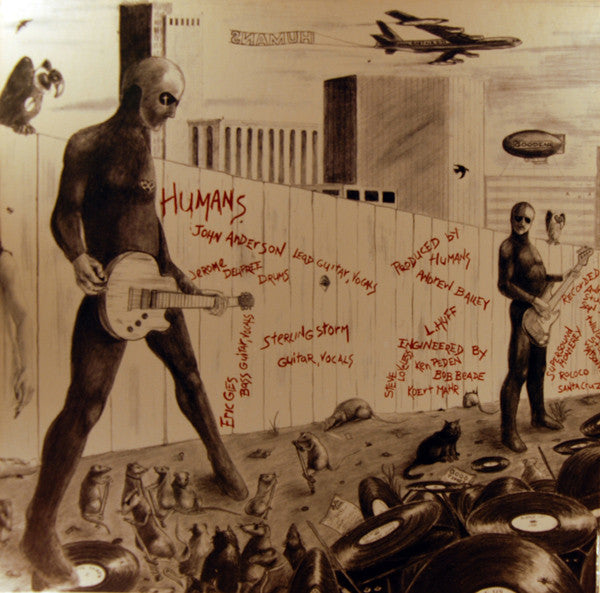 HUMANS
HUMANS
JOHN ANDERSON LEAD GUITAR, VOCALS
JEROME DEUPREE
DRUMS
ERIC GIES
BASS GUITAR, VOCALS
STERLING STORM
GUITAR, VOCALS
PRODUCED by
HUMANS
ANDREW BAILEY
ENGINEERED by
STEVE
KEN PEDEN
BOB BEADE
KOERT MAHR
RECORDED
SUPERSOUND
MONTEREY
ROCOCO
SANTA CRUZ